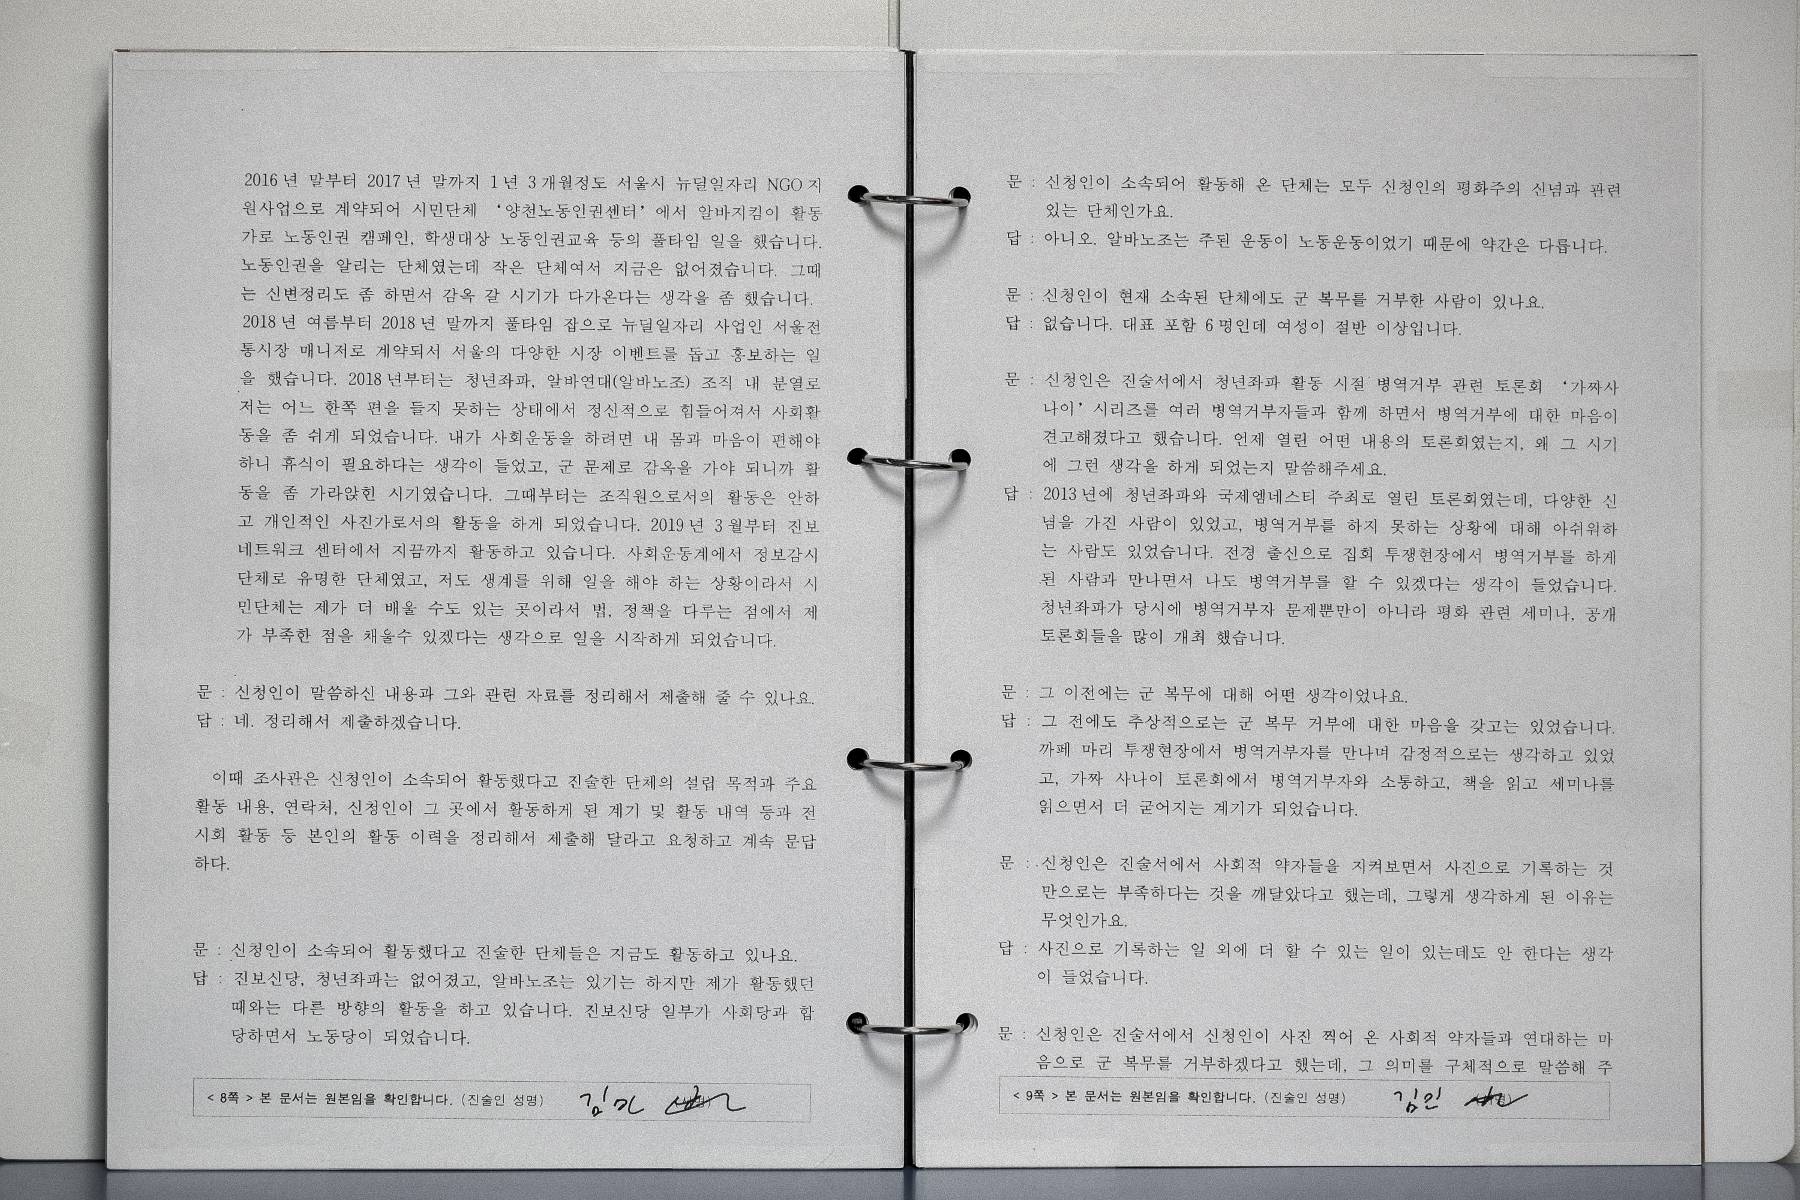 2016년 말부터 2017년 말까지 1년 3개월정도 서울시 뉴딜일자리 NGO지
원사업으로 계약되어 시민단체 ‘양천노동인권센터’에서 알바지킴이 활동
가로 노동인권 캠페인, 학생대상 노동인권교육 등의 풀타임 일을 했습니다.
노동인권을 알리는 단체였는데 작은 단체여서 지금은 없어졌습니다. 그때
는 신변정리도 좀 하면서 감옥 갈 시기가 다가온다는 생각을 좀 했습니다.
2018년 여름부터 2018년 말까지 풀타임 잡으로 뉴딜일자리 사업인 서울전
통시장 매니저로 계약되서 서울의 다양한 시장 이벤트를 돕고 홍보하는 일
을 했습니다. 2018년부터는 청년좌파, 알바연대(알바노조) 조직 내 분열로
저는 어느 한쪽 편을 들지 못하는 상태에서 정신적으로 힘들어져서 사회활
동을 좀 쉬게 되었습니다. 내가 사회운동을 하려면 내 몸과 마음이 편해야
하니 휴식이 필요하다는 생각이 들었고, 군 문제로 감옥을 가야 되니까 활
동을 좀 가라앉힌 시기였습니다. 그때부터는 조직원으로서의 활동은 안하
고 개인적인 사진가로서의 활동을 하게 되었습니다. 2019년 3월부터 진보
네트워크 센터에서 지끔까지 활동하고 있습니다. 사회운동계에서 정보감시
단체로 유명한 단체였고, 저도 생계를 위해 일을 해야 하는 상황이라서 시
민단체는 제가 더 배울 수도 있는 곳이라서 법, 정책을 다루는 점에서 제
가 부족한 점을 채울수 있겠다는 생각으로 일을 시작하게 되었습니다.
문 : 신청인이 말씀하신 내용과 그와 관련 자료를 정리해서 제출해 줄 수 있나요.
답 : 네. 정리해서 제출하겠습니다.
이때 조사관은 신청인이 소속되어 활동했다고 진술한 단체의 설립 목적과 주요
활동 내용, 연락처, 신청인이 그 곳에서 활동하게 된 계기 및 활동 내역 등과 전
시회 활동 등 본인의 활동 이력을 정리해서 제출해 달라고 요청하고 계속 문답
하다.
문 : 신청인이 소속되어 활동했다고 진술한 단체들은 지금도 활동하고 있나요.
답 : 진보신당, 청년좌파는 없어졌고, 알바노조는 있기는 하지만 제가 활동했던
때와는 다른 방향의 활동을 하고 있습니다. 진보신당 일부가 사회당과 합
당하면서 노동당이 되었습니다.
< 8쪽 > 본 문서는 원본임을 확인합니다. (진술인 성명)
문 : 신청인이 소속되어 활동해 온 단체는 모두 신청인의 평화주의 신념과 관련
있는 단체인가요.
답 : 아니오. 알바노조는 주된 운동이 노동운동이었기 때문에 약간은 다릅니다.
문 : 신청인이 현재 소속된 단체에도 군 복무를 거부한 사람이 있나요.
답 : 없습니다. 대표 포함 6명인데 여성이 절반 이상입니다.
문 : 신청인은 진술서에서 청년좌파 활동 시절 병역거부 관련 토론회 ‘가짜사
나이’ 시리즈를 여러 병역거부자들과 함께 하면서 병역거부에 대한 마음이
견고해졌다고 했습니다. 언제 열린 어떤 내용의 토론회였는지, 왜 그 시기
에 그런 생각을 하게 되었는지 말씀해주세요.
답 : 2013년에 청년좌파와 국제엠네스티 주최로 열린 토론회였는데, 다양한 신
념을 가진 사람이 있었고, 병역거부를 하지 못하는 상황에 대해 아쉬워하
는 사람도 있었습니다. 전경 출신으로 집회 투쟁현장에서 병역거부를 하게
된 사람과 만나면서 나도 병역거부를 할 수 있겠다는 생각이 들었습니다.
청년좌파가 당시에 병역거부자 문제뿐만이 아니라 평화 관련 세미나, 공개
토론회들을 많이 개최 했습니다.
문 : 그 이전에는 군 복무에 대해 어떤 생각이었나요.
답 : 그 전에도 추상적으로는 군 복무 거부에 대한 마음을 갖고는 있었습니다.
까페 마리 투쟁현장에서 병역거부자를 만나며 감정적으로는 생각하고 있었
고, 가짜 사나이 토론회에서 병역거부자와 소통하고, 책을 읽고 세미나를
읽으면서 더 굳어지는 계기가 되었습니다.
문 : 신청인은 진술서에서 사회적 약자들을 지켜보면서 사진으로 기록하는 것
만으로는 부족하다는 것을 깨달았다고 했는데, 그렇게 생각하게 된 이유는
무엇인가요.
답 : 사진으로 기록하는 일 외에 더 할 수 있는 일이 있는데도 안 한다는 생각
이 들었습니다.
문 : 신청인은 진술서에서 신청인이 사진 찍어 온 사회적 약자들과 연대하는 마
음으로 군 복무를 거부하겠다고 했는데, 그 의미를 구체적으로 말씀해 주
< 9쪽 > 본 문서는 원본임을 확인합니다. (진술인 성명)